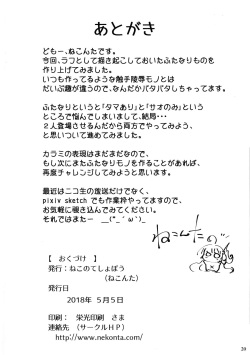 あとがき
どもー、ねこんたです。
今回、ラフとして描き起こしておいたふたなりものを
作り上げてみました。
いつも作ってるような触手陵辱モノとは
だいぶ趣が違うので、なんだかバタバタしちゃってます。
ふたなりというと『タマあり』と『サオのみ』という
ところで悩んでしまいまして、結局・・・
２人登場させるんだから両方でやってみよう、
と思いついて進めてみました。
カラミの表現はまだまだなので、
もし次にまたふたなりモノを作ることがあれば、
再度チャレンジしてみようと思います。
最近はニコ生の放送だけでなく、
pixiv sketch でも作業枠やってますので、
お気軽に覗き込んでみてください。
それではまたー __(°_´ω`)_
ねこんた=
【 おくづけ 】
発行：ねこのてしょぼう
（ねこんた）
発行日
2018年 ５月５日
印刷： 栄光印刷 さま
連絡先 （サークルＨＰ）
http://www.nekonta.com/
29